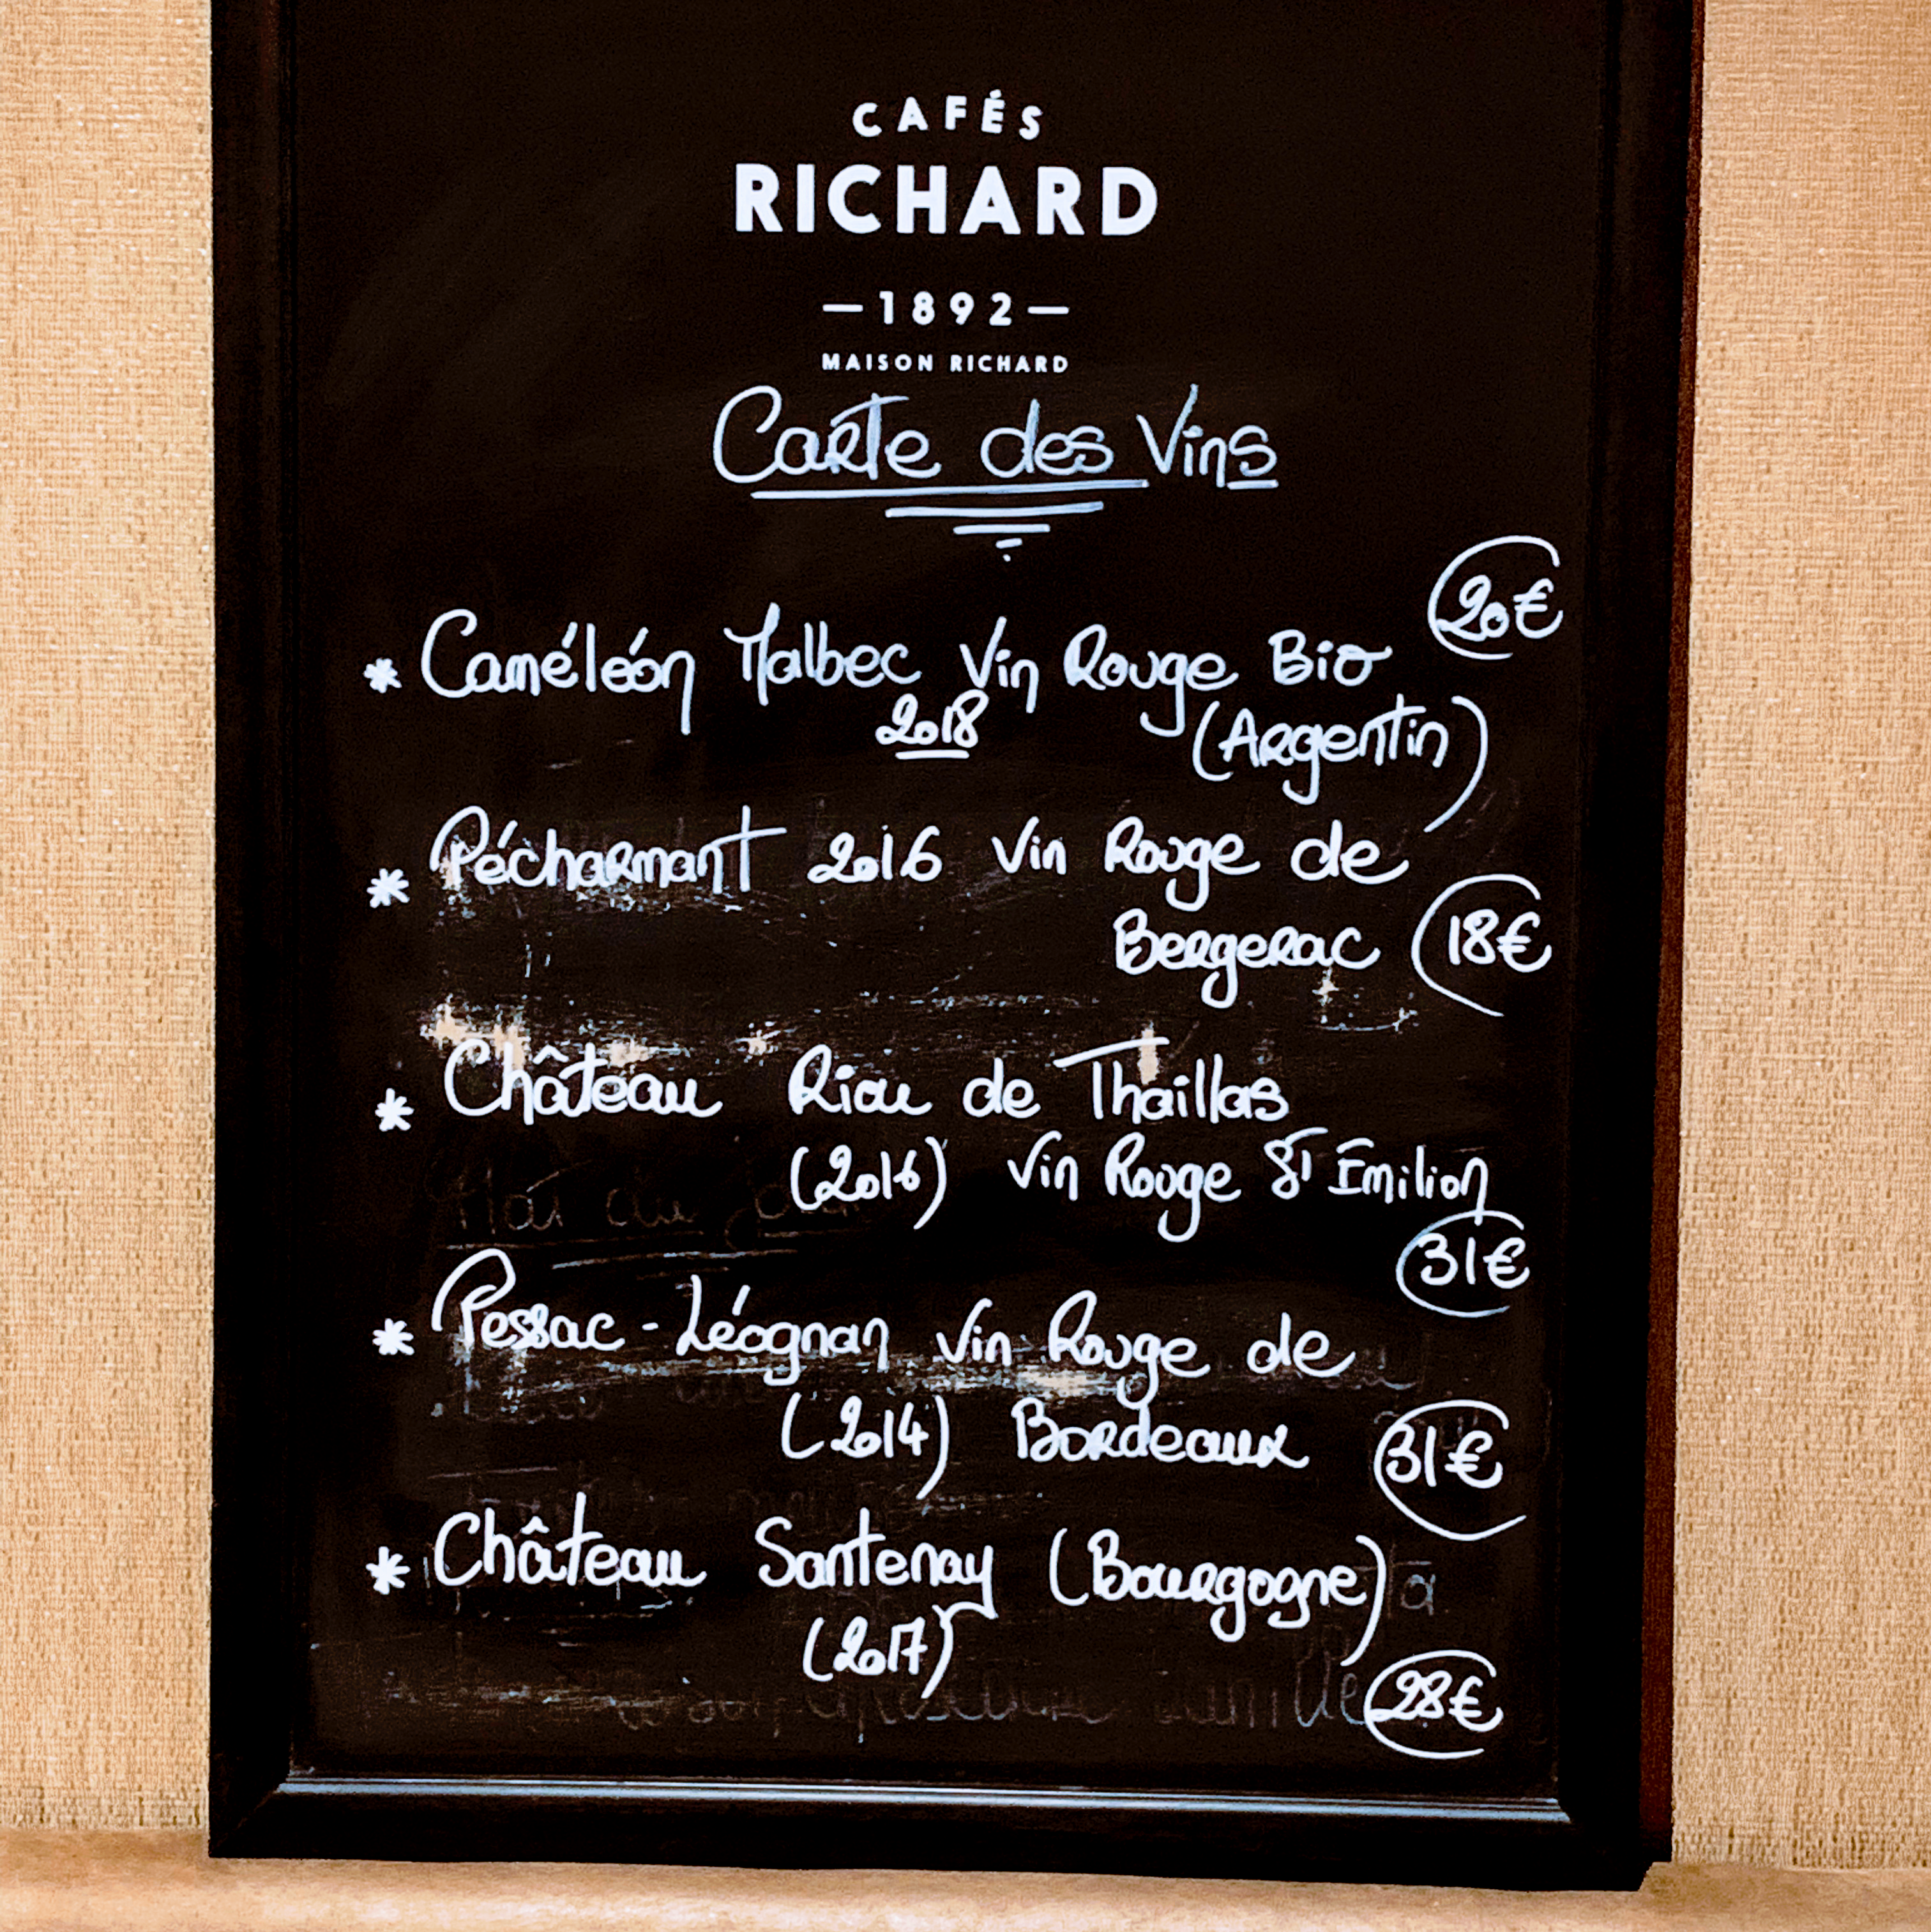 CAFÉS
RICHARD
—1892—
MAISON RICHARD
Carte des Vins
20€
* Caméléón Malbec Vin Rouge Bio
2018 (Argentin)
* Pécharmant 2016 Vin Rouge de
Bergerac 18€
* Château Riou de Thaillas
(2016) Vin Rouge St Emilion
31€
* Pessac-Léognan Vin Rouge de
(2014) Bordeaux 31€
* Château Santenay (Bourgogne)
(2017)
28€